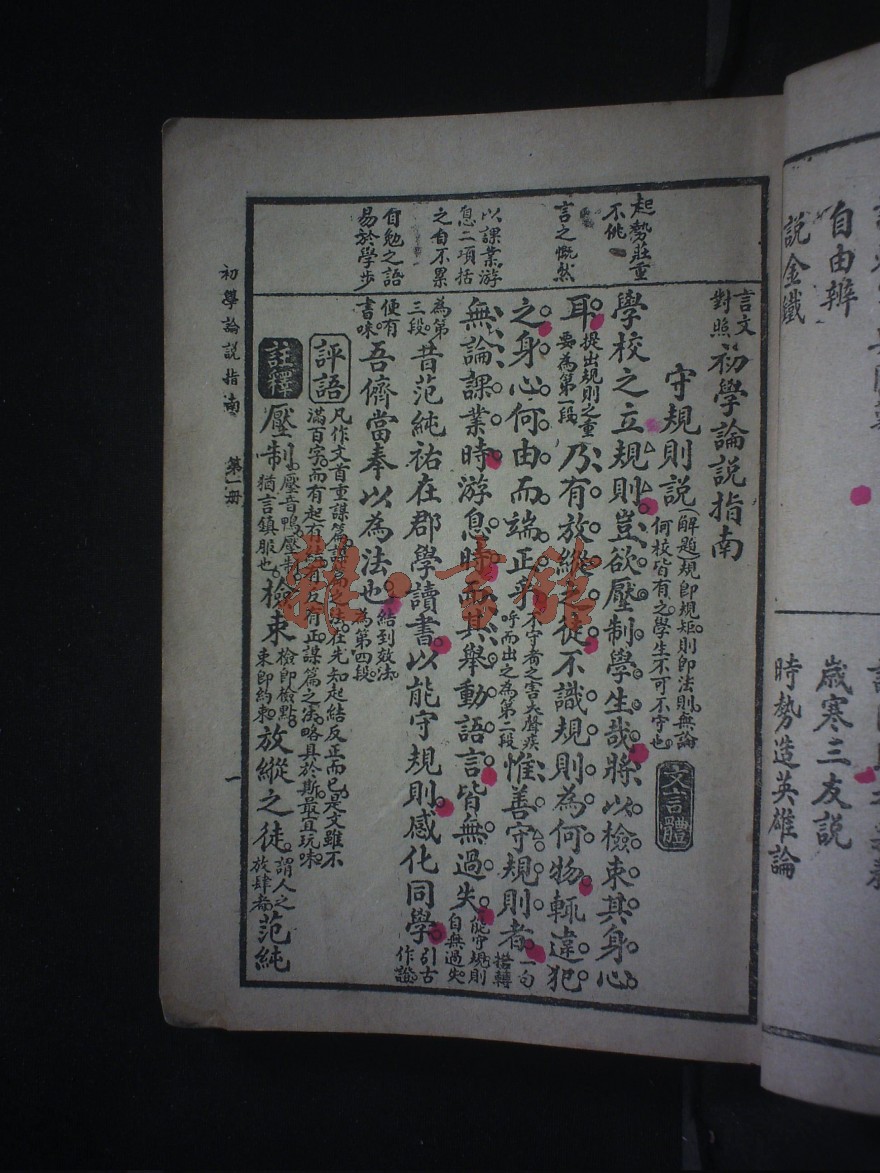 言文對照初學論說指南
守規則說(解題)規即規矩。則即法則。無論何校皆有之。學生不可不守也。文言體
學校之立規則。豈欲壓制學生哉。將以檢束其身心
耳。提出規則之重要為第一段乃有放縱之徒。不識規則為何物。輒違犯
之。身心何由而端正乎。不守者之害大聲疾呼而出之為第二段惟善守規則者。一句搭轉
無論課業時。游息時。而其舉動語言。皆無過失。能守規則自無過失
為第三段。昔范純祐在郡學讀書。以能守規則。感化同學。引古作證。
便有書味。吾儕當奉以為法也。結到效法。為第四段。
評語 凡作文首重謀篇。謀篇之法。在先知起結反正而已。是文雖不滿百字。而有起有結。有反有正。謀篇之法。略具於斯。最宜玩味。
註釋 壓制。壓音鴨。壓制。猶言鎮服也。檢束 檢即檢點。束即約束。放縱之徒。謂人之放肆者。范純
起勢莊重不佻
言之慨然
以課業游息二項括之自不累
自勉之語易於學步
初學論說指南 第一冊 一
自由辨
說金鐵
歲寒三友說
時勢造英雄論
雜·書館